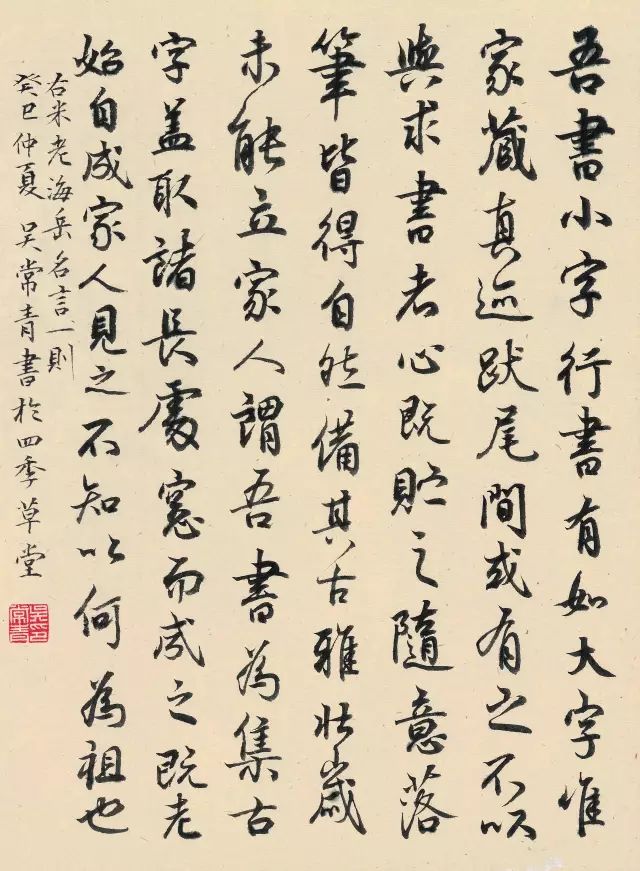 吾書小字行書有如大字唯
家藏真迹跋尾間或有之不以
與求書者心既貯之隨意落
筆皆得自然備其古雅壯歲
未能立家人謂吾書為集古
字蓋取諸長處總而成之既老
始自成家人見之不知以何為祖也
右米老海岳名言一則
癸巳仲夏吳常青書於四季草堂
吳常青印